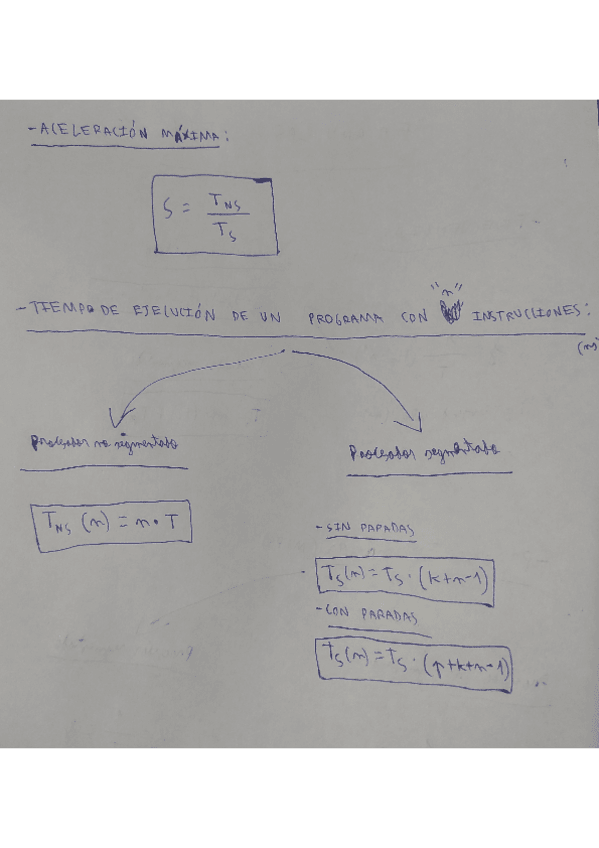 - ACELERACIÓN MÁXIMA:
S = T_NS / T_S
- TIEMPO DE EJECUCIÓN DE UN PROGRAMA CON "n" INSTRUCCIONES:
(n)
Procesador no segmentado
Procesador segmentado
T_NS (n) = n · T
- SIN PARADAS
T_S(n) = T_S · (k+n-1)
- CON PARADAS
T_S(n) = T_S · (p+k+n-1)